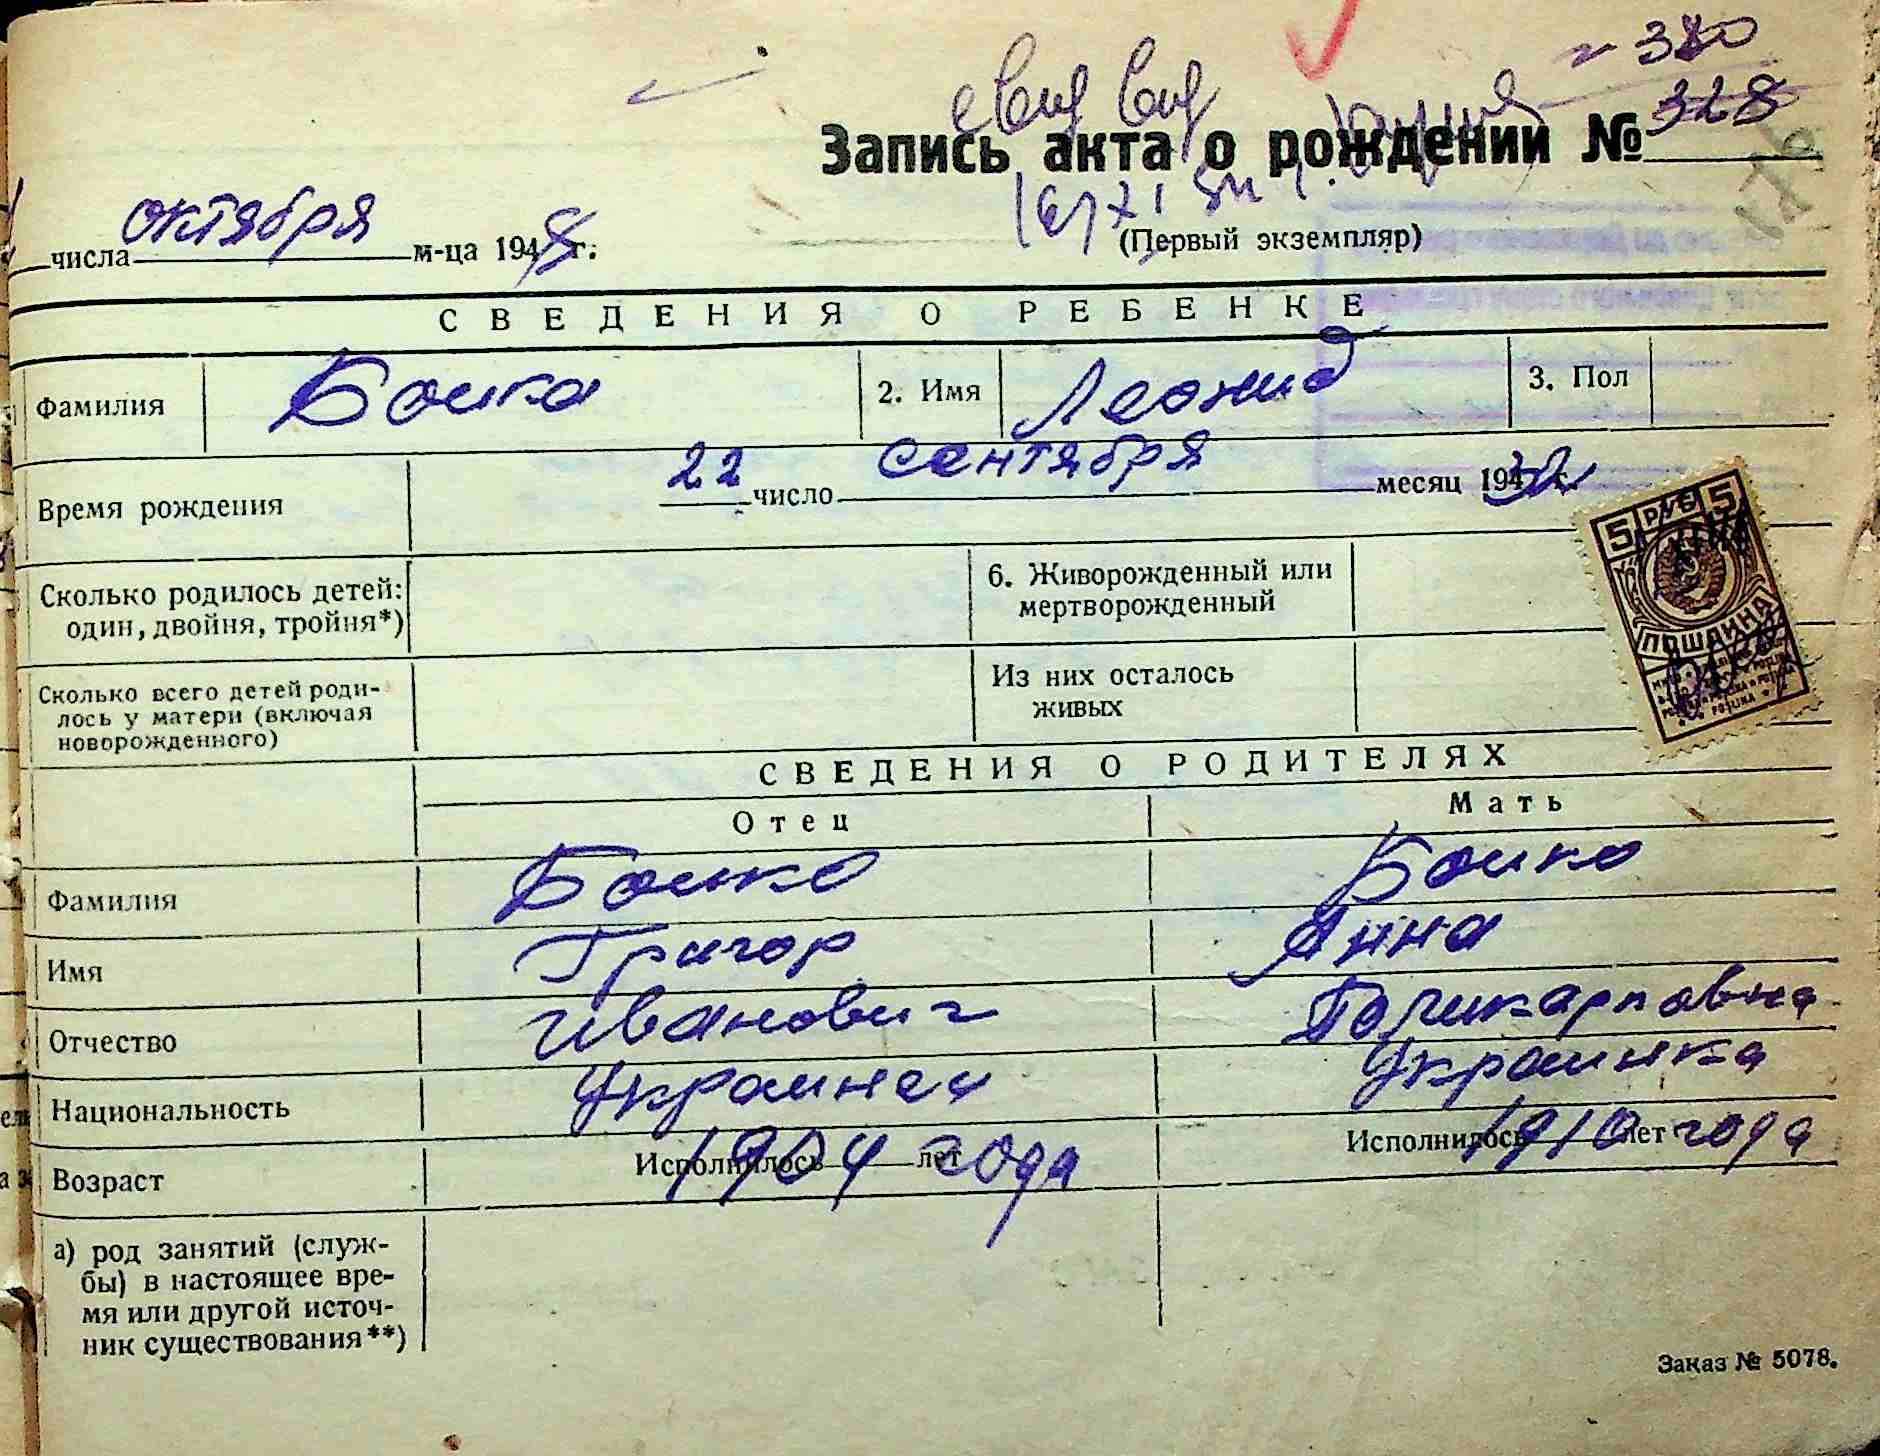 № 380
свид выд
Запись акта о рождении № 328
октября
числа м-ца 1948 г.
(Первый экземпляр)
СВЕДЕНИЯ О РЕБЕНКЕ
Фамилия Боика 2. Имя Леонид 3. Пол
Время рождения 22 число сентября месяц 1932 г.
5 РУБ 5
ПОШЛИНА
Сколько родилось детей: 6. Живорожденный или
один, двойня, тройня*) мертворожденный
Сколько всего детей роди- Из них осталось
лось у матери (включая живых
новорожденного)
СВЕДЕНИЯ О РОДИТЕЛЯХ
Отец Мать
Фамилия Боико Боико
Имя Григор Анна
Отчество Иванович Поликарповна
Национальность Украинец Украинка
Возраст Исполнилось 1904 лет года Исполнилось 1910 лет года
а) род занятий (служ-
бы) в настоящее вре-
мя или другой источ-
ник существования**)
Заказ № 5078.